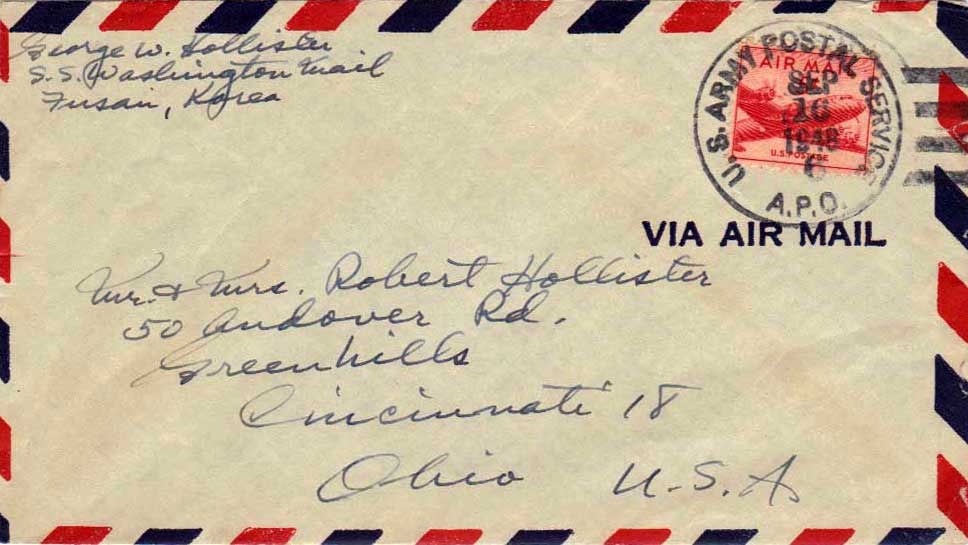 George W. Hollister
S.S. Washington Mail
Fusan, Korea
U.S. ARMY POSTAL SERVICE
A.P.O.
SEP
16
1948
6
AIR MAIL
U.S. POSTAGE
VIA AIR MAIL
Mr. & Mrs. Robert Hollister
50 Andover Rd.
Greenhills
Cincinnati 18
Ohio U.S.A